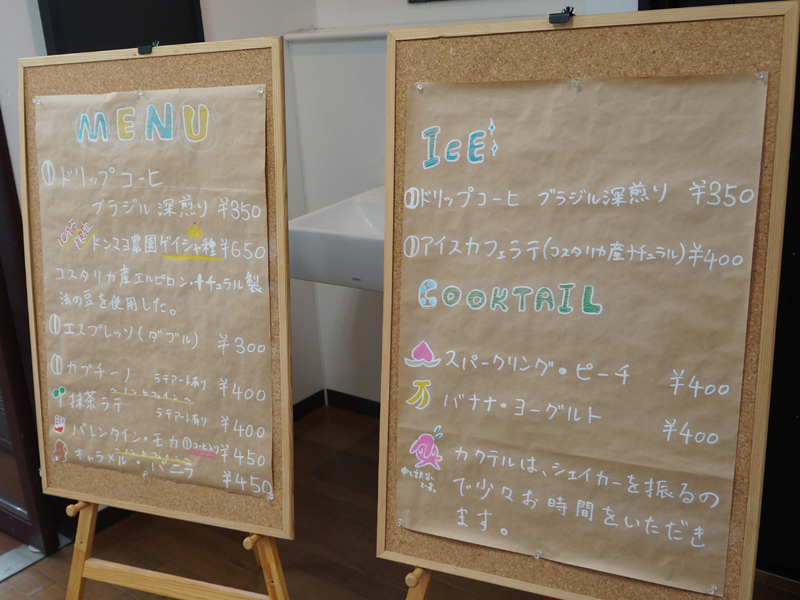 MENU
ドリップコーヒ
ブラジル深煎り ¥350
ドンマヨ農園ゲイシャ種 ¥650
コスタリカ産エルピロン・ナチュラル製
法の豆を使用した。
エスプレッソ(ダブル) ¥300
カプチーノ ラテアートあり ¥400
抹茶ラテ ラテアートあり ¥400
バレンタイン・モカ ¥450
キャラメル・バニラ ¥450
ICE
ドリップコーヒ ブラジル深煎り ¥350
アイスカフェラテ(コスタリカ産ナチュラル) ¥400
COOKTAIL
スパークリング・ピーチ ¥400
バナナ・ヨーグルト ¥400
カクテルは、シェイカーを振るの
で少々お時間をいただき
ます。